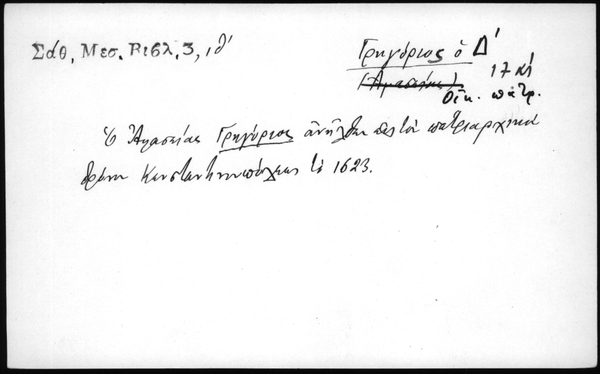 Σάθ, Μεσ. Βιβλ, 3, ιθ'
Γρηγόριος ὁ Δ'
(Ἀμασείας) 17 αἰ
Οἰκ. πατρ.
Ὁ Ἀμασείας Γρηγόριος ἀνῆλθεν εἰς τὸν πατριαρχικὸν
θρόνον Κωνσταντινουπόλεως τὸ 1623.